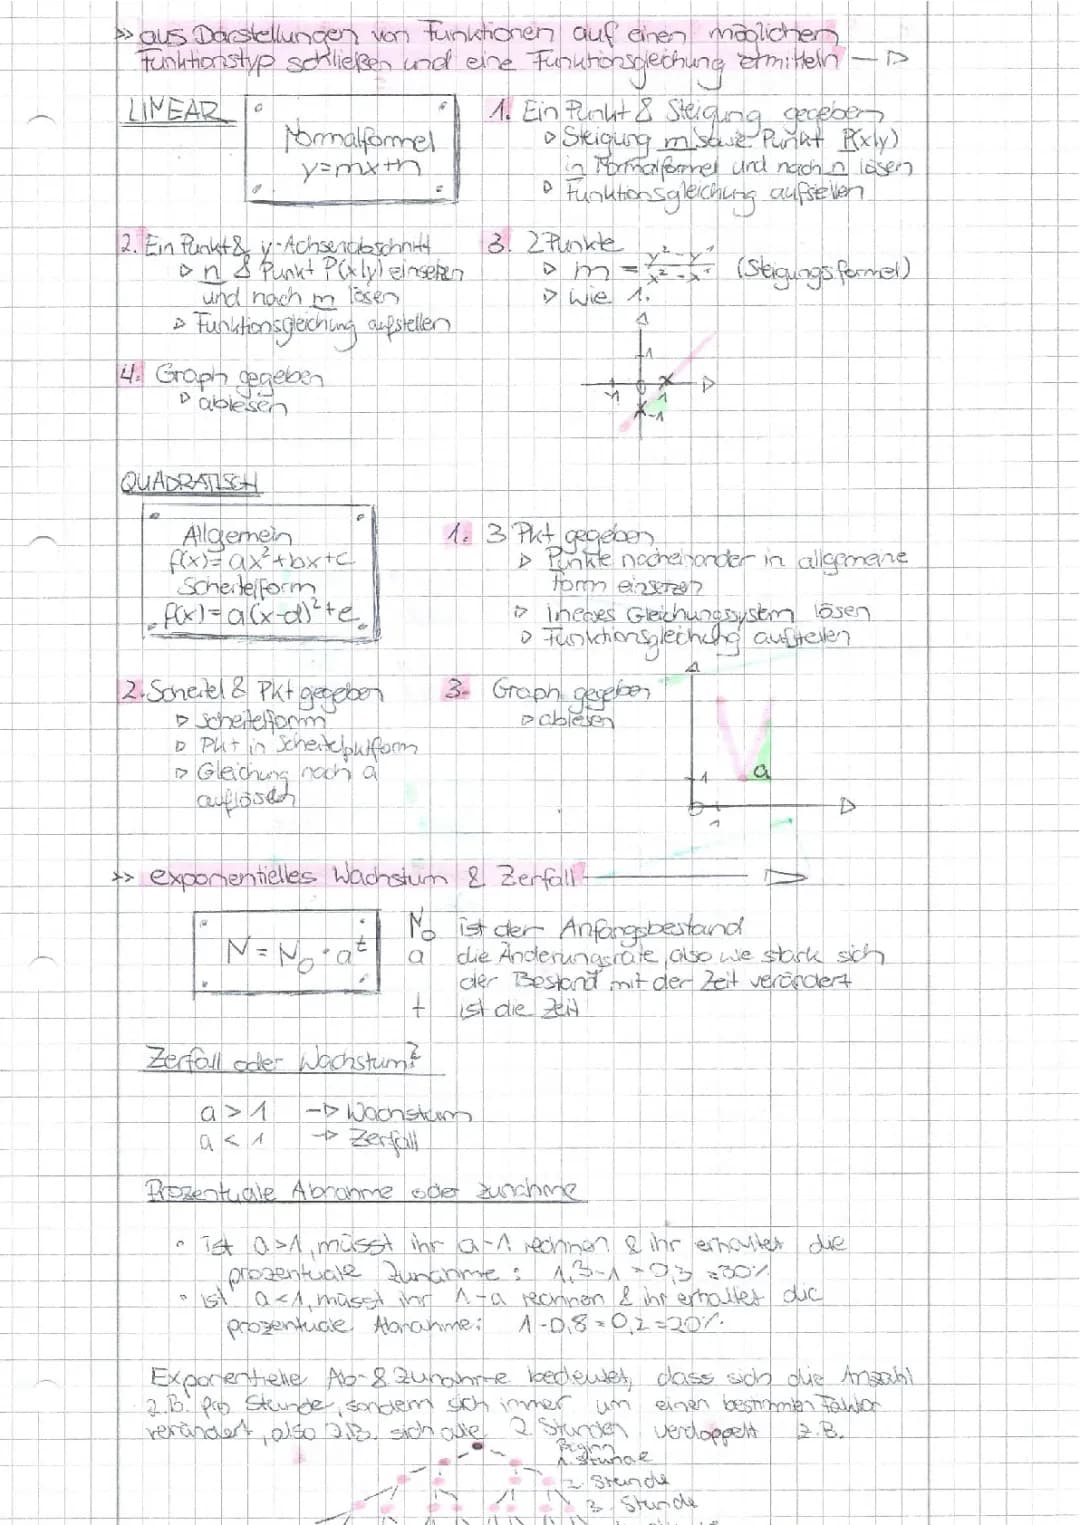 >> aus Darstellungen von Funktionen auf einen möglichen
Funktionstyp schließen und eine Funktionsgleichung ermitteln
LINEAR
Normalformel
y=mx+n
1. Ein Punkt & Steigung gegeben
▷ Steigung m sowie Punkt P(x|y)
in Normalformel und nach n lösen
▷ Funktionsgleichung aufstellen
2. Ein Punkt & y-Achsenabschnitt
▷ n & Punkt P(x|y) einsetzen
und nach m lösen
▷ Funktionsgleichung aufstellen
3. 2 Punkte
▷ m = y²-y¹ / x²-x¹ (Steigungsformel)
▷ wie 1.
4. Graph gegeben
▷ ablesen
1
-1 0 1
-1
QUADRATISCH
Allgemein
f(x)=ax²+bx+c
Scheitelform
f(x)=a(x-d)²+e
1. 3 Pkt gegeben
▷ Punkte nacheinander in allgemeine
Form einsetzen
▷ lineares Gleichungssystem lösen
▷ Funktionsgleichung aufstellen
2. Scheitel & Pkt gegeben
▷ Scheitelform
▷ Pkt in Scheitelpktform
▷ Gleichung nach a
auflösen
3. Graph gegeben
▷ ablesen
a
1
0
1
>> exponentielles Wachstum & Zerfall
N = N₀ · aᵗ
N₀ ist der Anfangsbestand
a die Änderungsrate, also wie stark sich
der Bestand mit der Zeit verändert
t ist die Zeit
Zerfall oder Wachstum?
a > 1 → Wachstum
a < 1 → Zerfall
Prozentuale Abnahme oder Zunahme
• ist a>1, müsst ihr a-1 rechnen & ihr erhaltet die
prozentuale Zunahme: 1,3-1=0,3=30%
• ist a<1, müsst ihr 1-a rechnen & ihr erhaltet die
prozentuale Abnahme: 1-0,8=0,2=20%.
Exponentielle Ab- & Zunahme bedeutet, dass sich die Anzahl
z.B. pro Stunde, sondern sich immer um einen bestimmten Faktor
verändert, also z.B. sich alle 2 Stunden verdoppelt z.B.
Beginn
1. Stunde
2. Stunde
3. Stunde